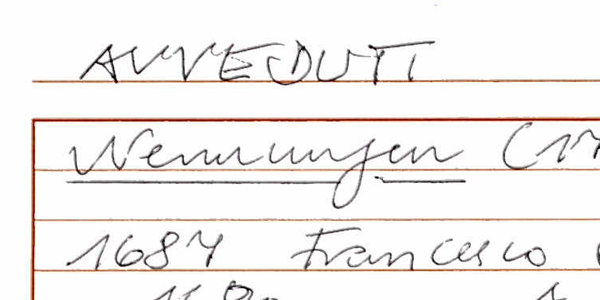 AVVEDUTI
Nennungen (17
1687 Francesco (